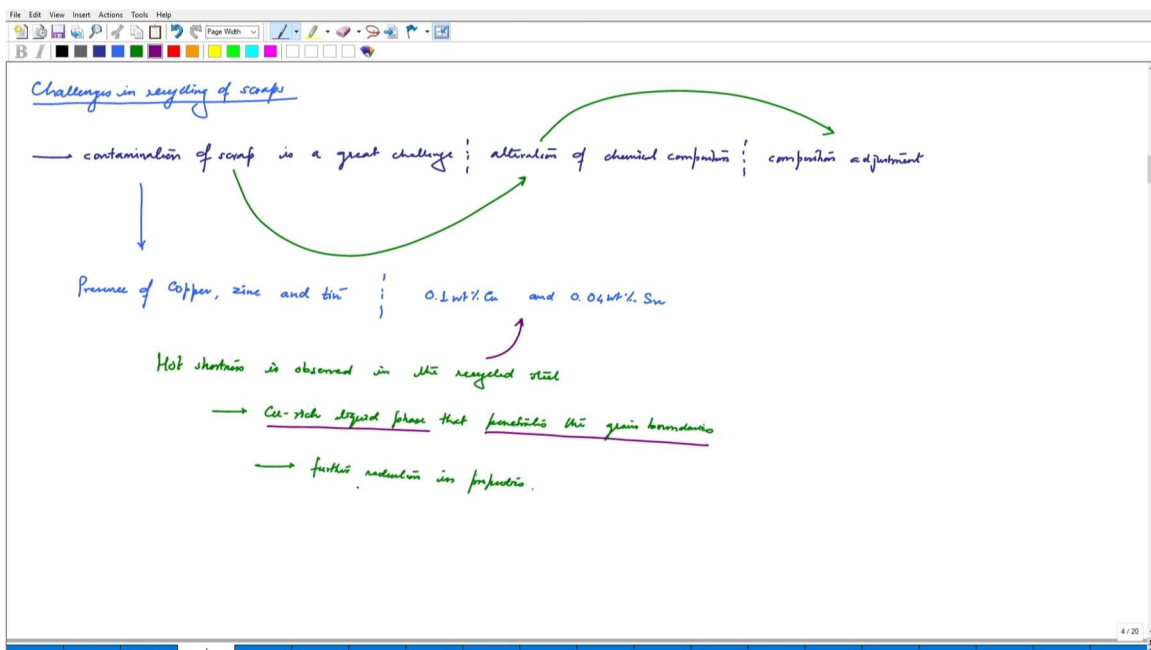 File Edit View Insert Actions Tools Help
Page Width
B I
Challenges in recycling of scraps
→ contamination of scrap is a great challenge ¦ alteration of chemical composition ¦ composition adjustment
Presence of Copper, zinc and tin ¦ 0.1 wt% Cu and 0.04 wt% Sn
Hot shortness is observed in the recycled steel
→ Cu-rich liquid phase that penetrates the grain boundaries
→ further reduction in properties.
4 / 20